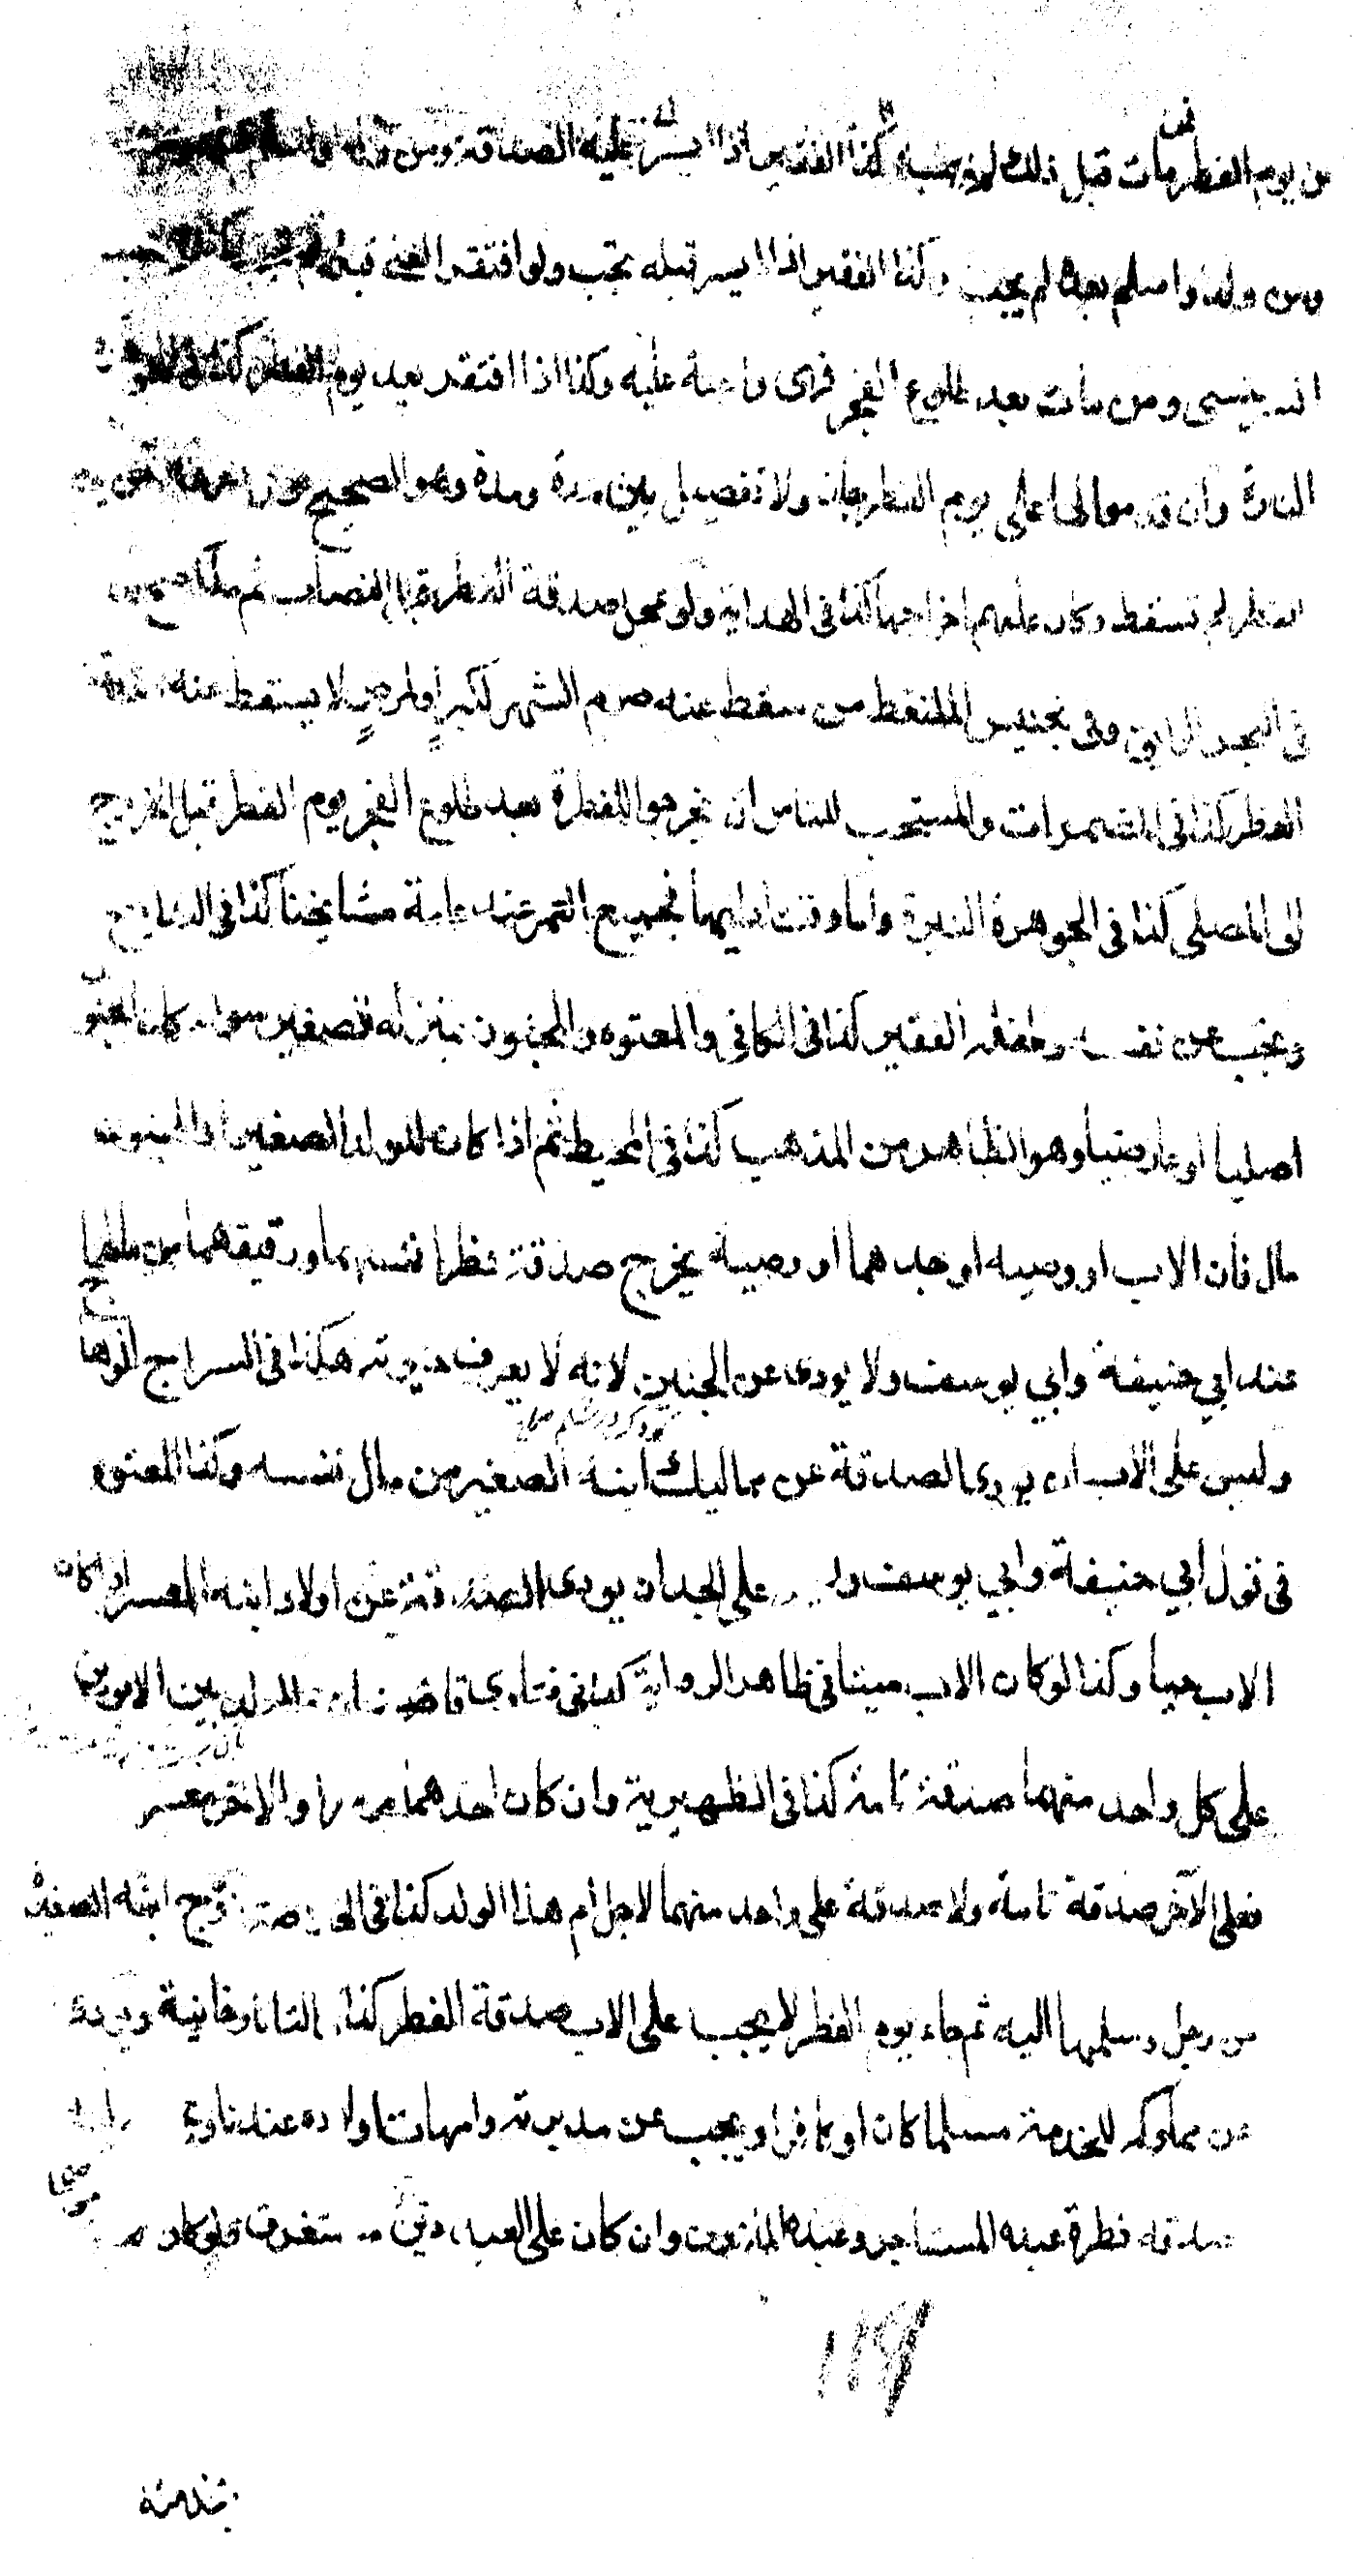 من يوم الفطر فمن مات قبل ذلك لم تجب عليه الصدقة ومن ولد
ومن ولد او اسلم بعده لم يجب وكذا الفقير اذا ايسر قبله تجب ولو افتقر الغنى قبله لم تجب كذا فى
ومن مات بعد طلوع الفجر فهى واجبة عليه وكذا اذا افتقر بعد يوم الفطر كذا فى الجوهرة
النيرة وان قدموها على يوم الفطر جاز ولا تفصيل بين مدة ومدة وهو الصحيح وان اخروها عن يوم
الفطر لم تسقط وكان عليهم اخراجها كذا فى الهداية ولو عجل صدقة الفطر قبل النصاب ثم ملكه صح
فى البحر الرايق وفى تجنيس الملتقط من سقط عنه صوم الشهر لكبر او لمرض لا يسقط عنه صدقة
الفطر كذا فى المضمرات والمستحب للناس ان يخرجوا الفطرة بعد طلوع الفجر يوم الفطر قبل الخروج
الى المصلى كذا فى الجوهرة النيرة واما وقت ادايها فجميع العمر عند عامة مشايخنا كذا فى البدايع
وتجب عن نفسه وطفله الفقير كذا فى الكافى والمعتوه والمجنون بمنزلة الصغير سواء كان الجنون
اصليا او عارضيا وهو الظاهر من المذهب كذا فى المحيط ثم اذا كان للولد الصغير او المجنون
مال فان الاب او وصيه او جدهما او وصيه يخرج صدقة فطر انفسهما ورقيقهما من مالهما
عند ابي حنيفة وابي يوسف ولا يودى عن الجنين لانه لا يعرف حيوته هكذا فى السراج الوهاج
وليس على الاب ان يودى الصدقة عن مماليك ابنه الصغير من مال نفسه وكذا المعتوه
فى قول ابي حنيفة وابي يوسف على الجد ان يودى الصدقة عن اولاد ابنه المعسر اذا كان
الاب حيا وكذا لو كان الاب ميتا فى ظاهر الرواية كذا فى فتاوى قاضى خان الولد بين الابوين
على كل واحد منهما صدقة تامة كذا فى الظهيرية وان كان احدهما موسرا والاخر معسر
فعلى الآخر صدقة تامة ولا صدقة على واحد منهما لاجل ام هذا الولد كذا فى زوج ابنته الصغيرة
من رجل وسلمها اليه ثم جاء يوم الفطر لا يجب على الاب صدقة الفطر كذا فى التاتارخانية ويودى
عن مملوكه للخدمة مسلما كان او كافرا ويجب عن مدبريه وامهات اولاده عندنا
صدقة فطرة عبده المستاجر وعبده الماذون وان كان على العبد دين مستغرق ولو كان
١١٩
بخدمته